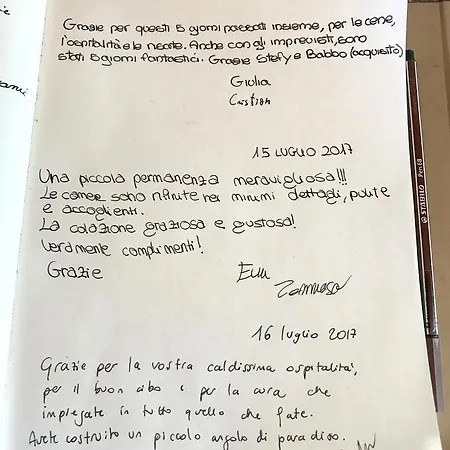 Grazie per questi 5 giorni passati insieme, per le cene,
l'ospitalità e le risate. Anche con gli imprevisti, sono
stati 5 giorni fantastici. Grazie Stefy e Babbo (acquisito)
Giulia
Cristian
15 LUGLIO 2017
Una piccola permanenza meravigliosa!!!
Le camere sono rifinite nei minimi dettagli, pulite
e accoglienti.
La colazione graziosa e gustosa!
Veramente complimenti!
Grazie
Tommaso
16 luglio 2017
Grazie per la vostra caldissima ospitalità,
per il buon cibo e per la cura che
impiegate in tutto quello che fate.
Avete costruito un piccolo angolo di paradiso.
STABILO Pen 68